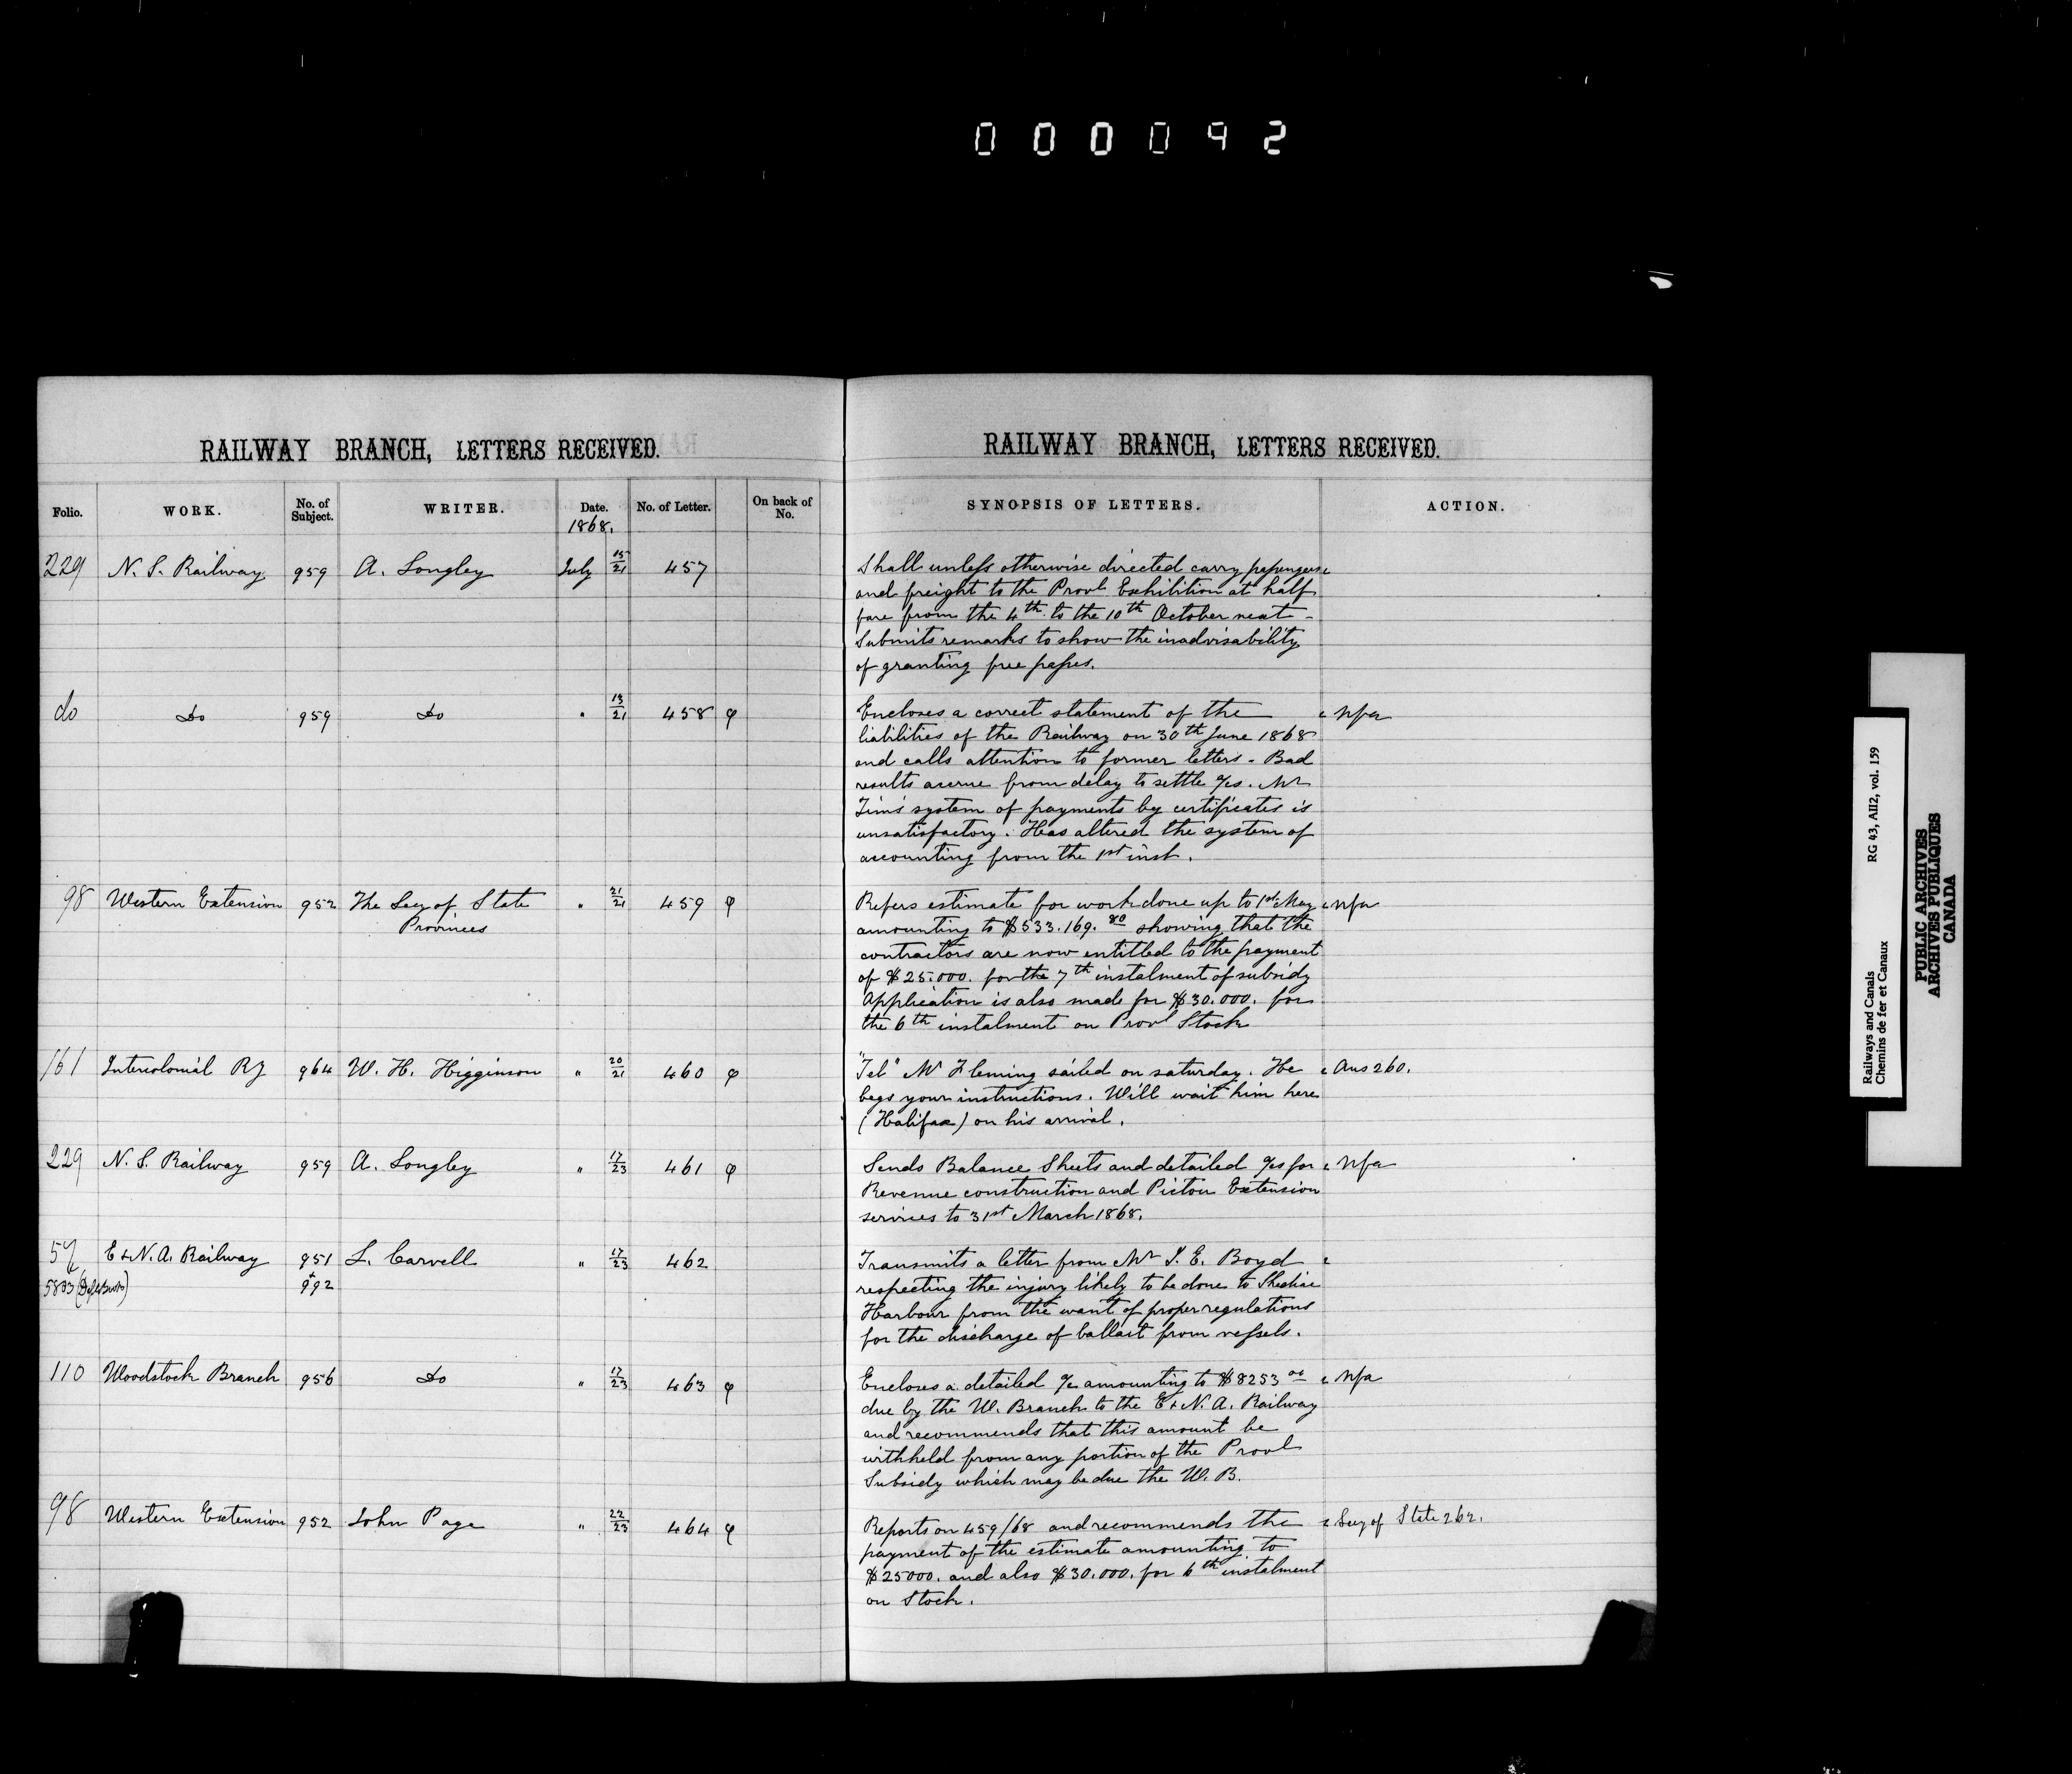 000092
RAILWAY BRANCH, LETTERS RECEIVED.
Folio. WORK. No. of Subject. WRITER. Date. 1868. No. of Letter. On back of No.
229 N. S. Railway 959 A. Longley July 15/21 457
do Do 959 Do " 13/21 458 φ
98 Western Extension 952 The Secy of State " 21/21 459 φ
Provinces
161 Intercolonial Ry 964 W. H. Higginson " 20/21 460 φ
229 N. S. Railway 959 A. Longley " 17/23 461 φ
57 E & N. A. Railway 951 L. Carvell " 17/23 462
5803 + 992
110 Woodstock Branch 956 Do " 17/23 463 φ
98 Western Extension 952 John Page " 22/23 464 φ
RAILWAY BRANCH, LETTERS RECEIVED.
SYNOPSIS OF LETTERS. ACTION.
Shall unless otherwise directed carry passengers
and freight to the Provl Exhibition at half
fare from the 4th to the 10th October next -
Submits remarks to show the inadvisability
of granting free passes.
Encloses a correct statement of the Nfa
liabilities of the Railway on 30th June 1868
and calls attention to former letters - Bad
results accrue from delay to settle a/cs. Mr
system of payments by certificates is
unsatisfactory. Has altered the system of
accounting from the 1st inst.
Refers estimate for work done up to 1st May Nfa
amounting to $533.169.80 showing that the
contractors are now entitled to the payment
of $25.000. for the 7th instalment of subsidy
Application is also made for $30.000. for
the 6th instalment on Provl Stock
"Tel" Mr Fleming sailed on saturday. He Ans 260.
begs your instructions. Will wait him here
(Halifax) on his arrival.
Sends Balance Sheets and detailed a/cs for Nfa
Revenue construction and Pictou Extension
services to 31st March 1868.
Transmits a letter from Mr J. E. Boyd
respecting the injury likely to be done to Shediac
Harbour from the want of proper regulations
for the discharge of ballast from vessels.
Encloses a detailed a/c amounting to $8253 Nfa
due by the W. Branch to the E & N. A. Railway
and recommends that this amount be
withheld from any portion of the Provl
Subsidy which may be due the W. B.
Reports on 459/68 and recommends the Secy of State 262.
payment of the estimate amounting to
$25000. and also $30.000. for 6th instalment
on Stock.
Railways and Canals RG 43, AII2, vol. 159
Chemins de fer et Canaux
PUBLIC ARCHIVES
ARCHIVES PUBLIQUES
CANADA